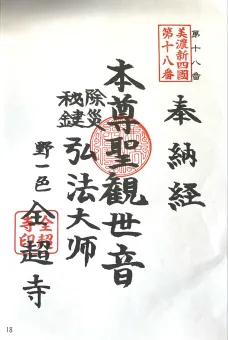 第十八番
美濃新四國
第十八番
奉納経
本尊聖観世音
除災
秘鍵
弘法大師
野一色
全超寺
全超
寺印
18